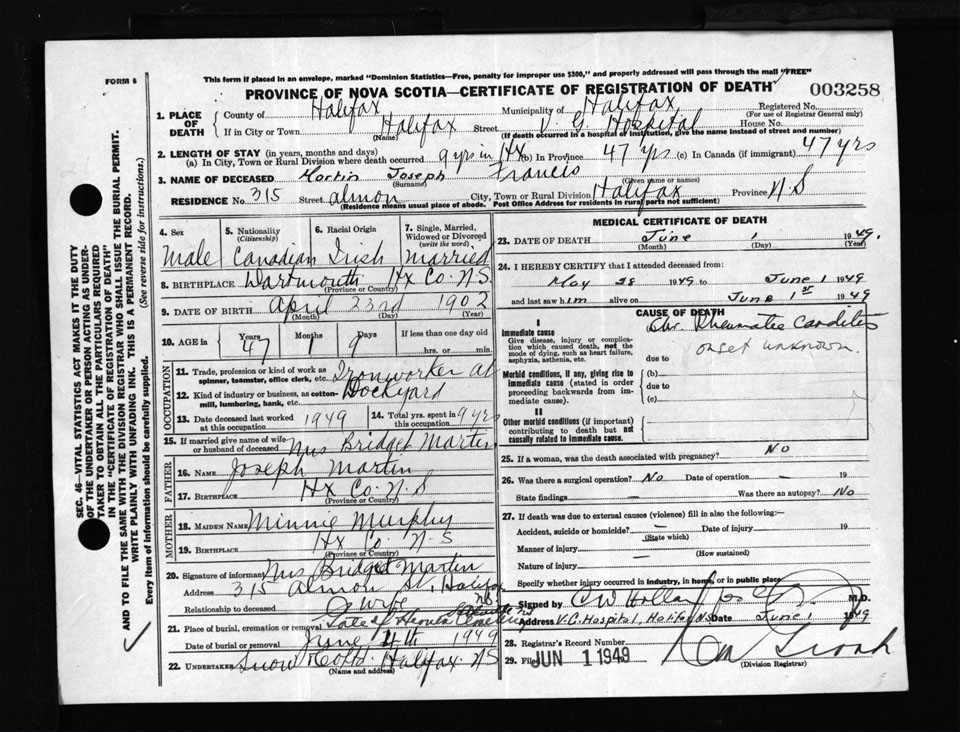 FORM 6
This form if placed in an envelope, marked "Dominion Statistics—Free, penalty for improper use $300," and properly addressed will pass through the mail "FREE"
PROVINCE OF NOVA SCOTIA—CERTIFICATE OF REGISTRATION OF DEATH
003258
1. PLACE OF DEATH
County of Halifax Municipality of Halifax Registered No.
(For use of Registrar General only)
If in City or Town Halifax Street V. G. Hospital House No.
(Name) (If death occurred in a hospital or institution, give the name instead of street and number)
2. LENGTH OF STAY (in years, months and days)
(a) In City, Town or Rural Division where death occurred 9 yrs in Hx (b) In Province 47 yrs (c) In Canada (if immigrant) 47 yrs
3. NAME OF DECEASED Martin Joseph Francis
(Surname) (Given name or names)
RESIDENCE No. 315 Street Almon City, Town or Rural Division Halifax Province N S
(Residence means usual place of abode. Post Office Address for residents in rural parts not sufficient)
4. Sex
Male
5. Nationality
(Citizenship)
Canadian
6. Racial Origin
Irish
7. Single, Married, Widowed or Divorced
(write the word)
Married
8. BIRTHPLACE Dartmouth Hx Co. N.S
(Province or Country)
9. DATE OF BIRTH April 23rd 1902
(Month) (Day) (Year)
10. AGE in Years Months Days If less than one day
47 1 9 hrs. or min.
OCCUPATION
11. Trade, profession or kind of work as spinner, teamster, office clerk, etc. Ironworker at
12. Kind of industry or business, as cotton-mill, lumbering, bank, etc. Dockyard
13. Date deceased last worked at this occupation 1949
14. Total yrs. spent in this occupation 9 yrs
15. If married give name of wife or husband of deceased Mrs Bridget Martin
FATHER
16. NAME Joseph Martin
17. BIRTHPLACE Hx Co. N.S
(Province or Country)
MOTHER
18. MAIDEN NAME Minnie Murphy
19. BIRTHPLACE Hx Co N-S
(Province or Country)
20. Signature of informant Mrs Bridget Martin
Address 315 Almon St, Halifax N.S.
Relationship to deceased wife
21. Place of burial, cremation or removal Gate of Heaven Cemetery
Date of burial or removal June 4th 1949
22. UNDERTAKER Snow & Co Ltd. Halifax NS
(Name and address)
MEDICAL CERTIFICATE OF DEATH
23. DATE OF DEATH June 1 1949.
(Month) (Day) (Year)
24. I HEREBY CERTIFY that I attended deceased from:
May 28 1949 to June 1 1949
and last saw him alive on June 1st 1949
CAUSE OF DEATH
I
Immediate cause
Give disease, injury or complication which caused death, not the mode of dying, such as heart failure, asphyxia, asthenia, etc.
Chr. Rheumatic Carditis
onset unknown.
due to
Morbid conditions, if any, giving rise to immediate cause (stated in order proceeding backwards from immediate cause).
(b)
due to
(c)
II
Other morbid conditions (if important) contributing to death but not causally related to immediate cause.
25. If a woman, was the death associated with pregnancy? No
26. Was there a surgical operation? No Date of operation – 19
State findings – Was there an autopsy? No
27. If death was due to external causes (violence) fill in also the following:—
Accident, suicide or homicide? – Date of injury 19
(State which)
Manner of injury –
(How sustained)
Nature of injury
Specify whether injury occurred in industry, in home, or in public place
Signed by M.D.
Address V.G. Hospital, Halifax N.S Date June 1 1949
28. Registrar's Record Number
29. Filed JUN 1 1949
(Division Registrar)
SEC. 46—VITAL STATISTICS ACT MAKES IT THE DUTY
OF THE UNDERTAKER OR PERSON ACTING AS UNDER-
TAKER TO OBTAIN ALL THE PARTICULARS REQUIRED
IN THE "CERTIFICATE OF REGISTRATION OF DEATH"
AND TO FILE THE SAME WITH THE DIVISION REGISTRAR WHO SHALL ISSUE THE BURIAL PERMIT.
WRITE PLAINLY WITH UNFADING INK. THIS IS A PERMANENT RECORD.
Every item of information should be carefully supplied. (See reverse side for instructions.)